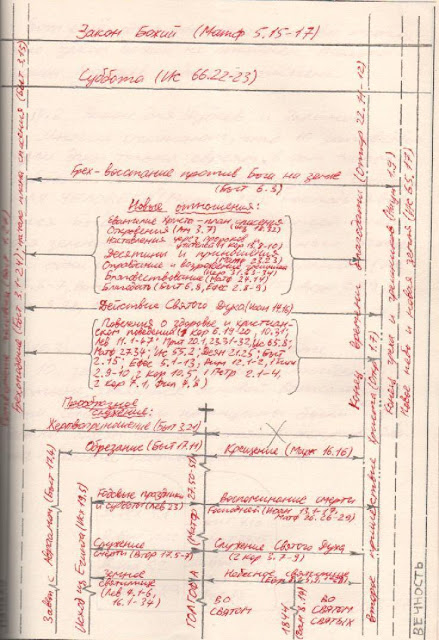 Закон Божий (Матф 5.15-17)
Суббота (Ис 66.22-23)
Грех-восстание против Бога на земле
(Быт 6.5)
Новые отношения:
Евангелие Христа - план спасения
Откровения (Ам 3.7)
Наставления через пророков
Десятины и приношения
(Матф 23.23)
Оправдание и возрождение
Благовествование (Матф 24.14)
Благодать (Быт 6.8, Ефес 2.8-9)
Действие Святого Духа (Иоан 14.16)
Повеления о здоровье и христиан-
ском поведении (1 Кор 6.19-20; 10.31
Лев 11.1-47; Прит 20.1, 23.31-32, Ис 65.8
Матф 27.34; Ис 55.2; Деян 21.25; Быт
2.15; Ефес 5.1-13, Рим 12.1-2, 1 Тим
2.9-10, 2 Кор 10.5, 1 Петр 2.1-4,
2 Кор 7.1, Фил 4.8)
Прообразное
служение:
Жертвоприношение (Быт 3.21)
Обрезание (Быт 17.11)
Крещение (Марк 16.16)
Годовые праздники
и субботы (Лев 23)
Воспоминание смерти
Голгофной (Иоан 13.1-17,
Матф 26.26-29)
Служение
смерти (Втор 17.5-7)
Служение Святого Духа
(2 Кор 3.7-9)
Земное
святилище
(Лев 4.1-6,
16.1-34)
Небесное святилище
во
святом
1844
(Дан 8.14)
во
святом
святых
Грехопадение (Быт 3.1-24); начало плана спасения (Быт 3.15)
Завет с Авраамом (Быт 17.6)
Исход из Египта
ГОЛГОФА (Матф 27.50-51)
Конец времени благодати (Откр 22.11-12)
Второе пришествие Христа (Откр 1.7)
Конец греха и грешников (Наум 1.9)
Новое небо и новая земля (Ис 65.17)
ВЕЧНОСТЬ